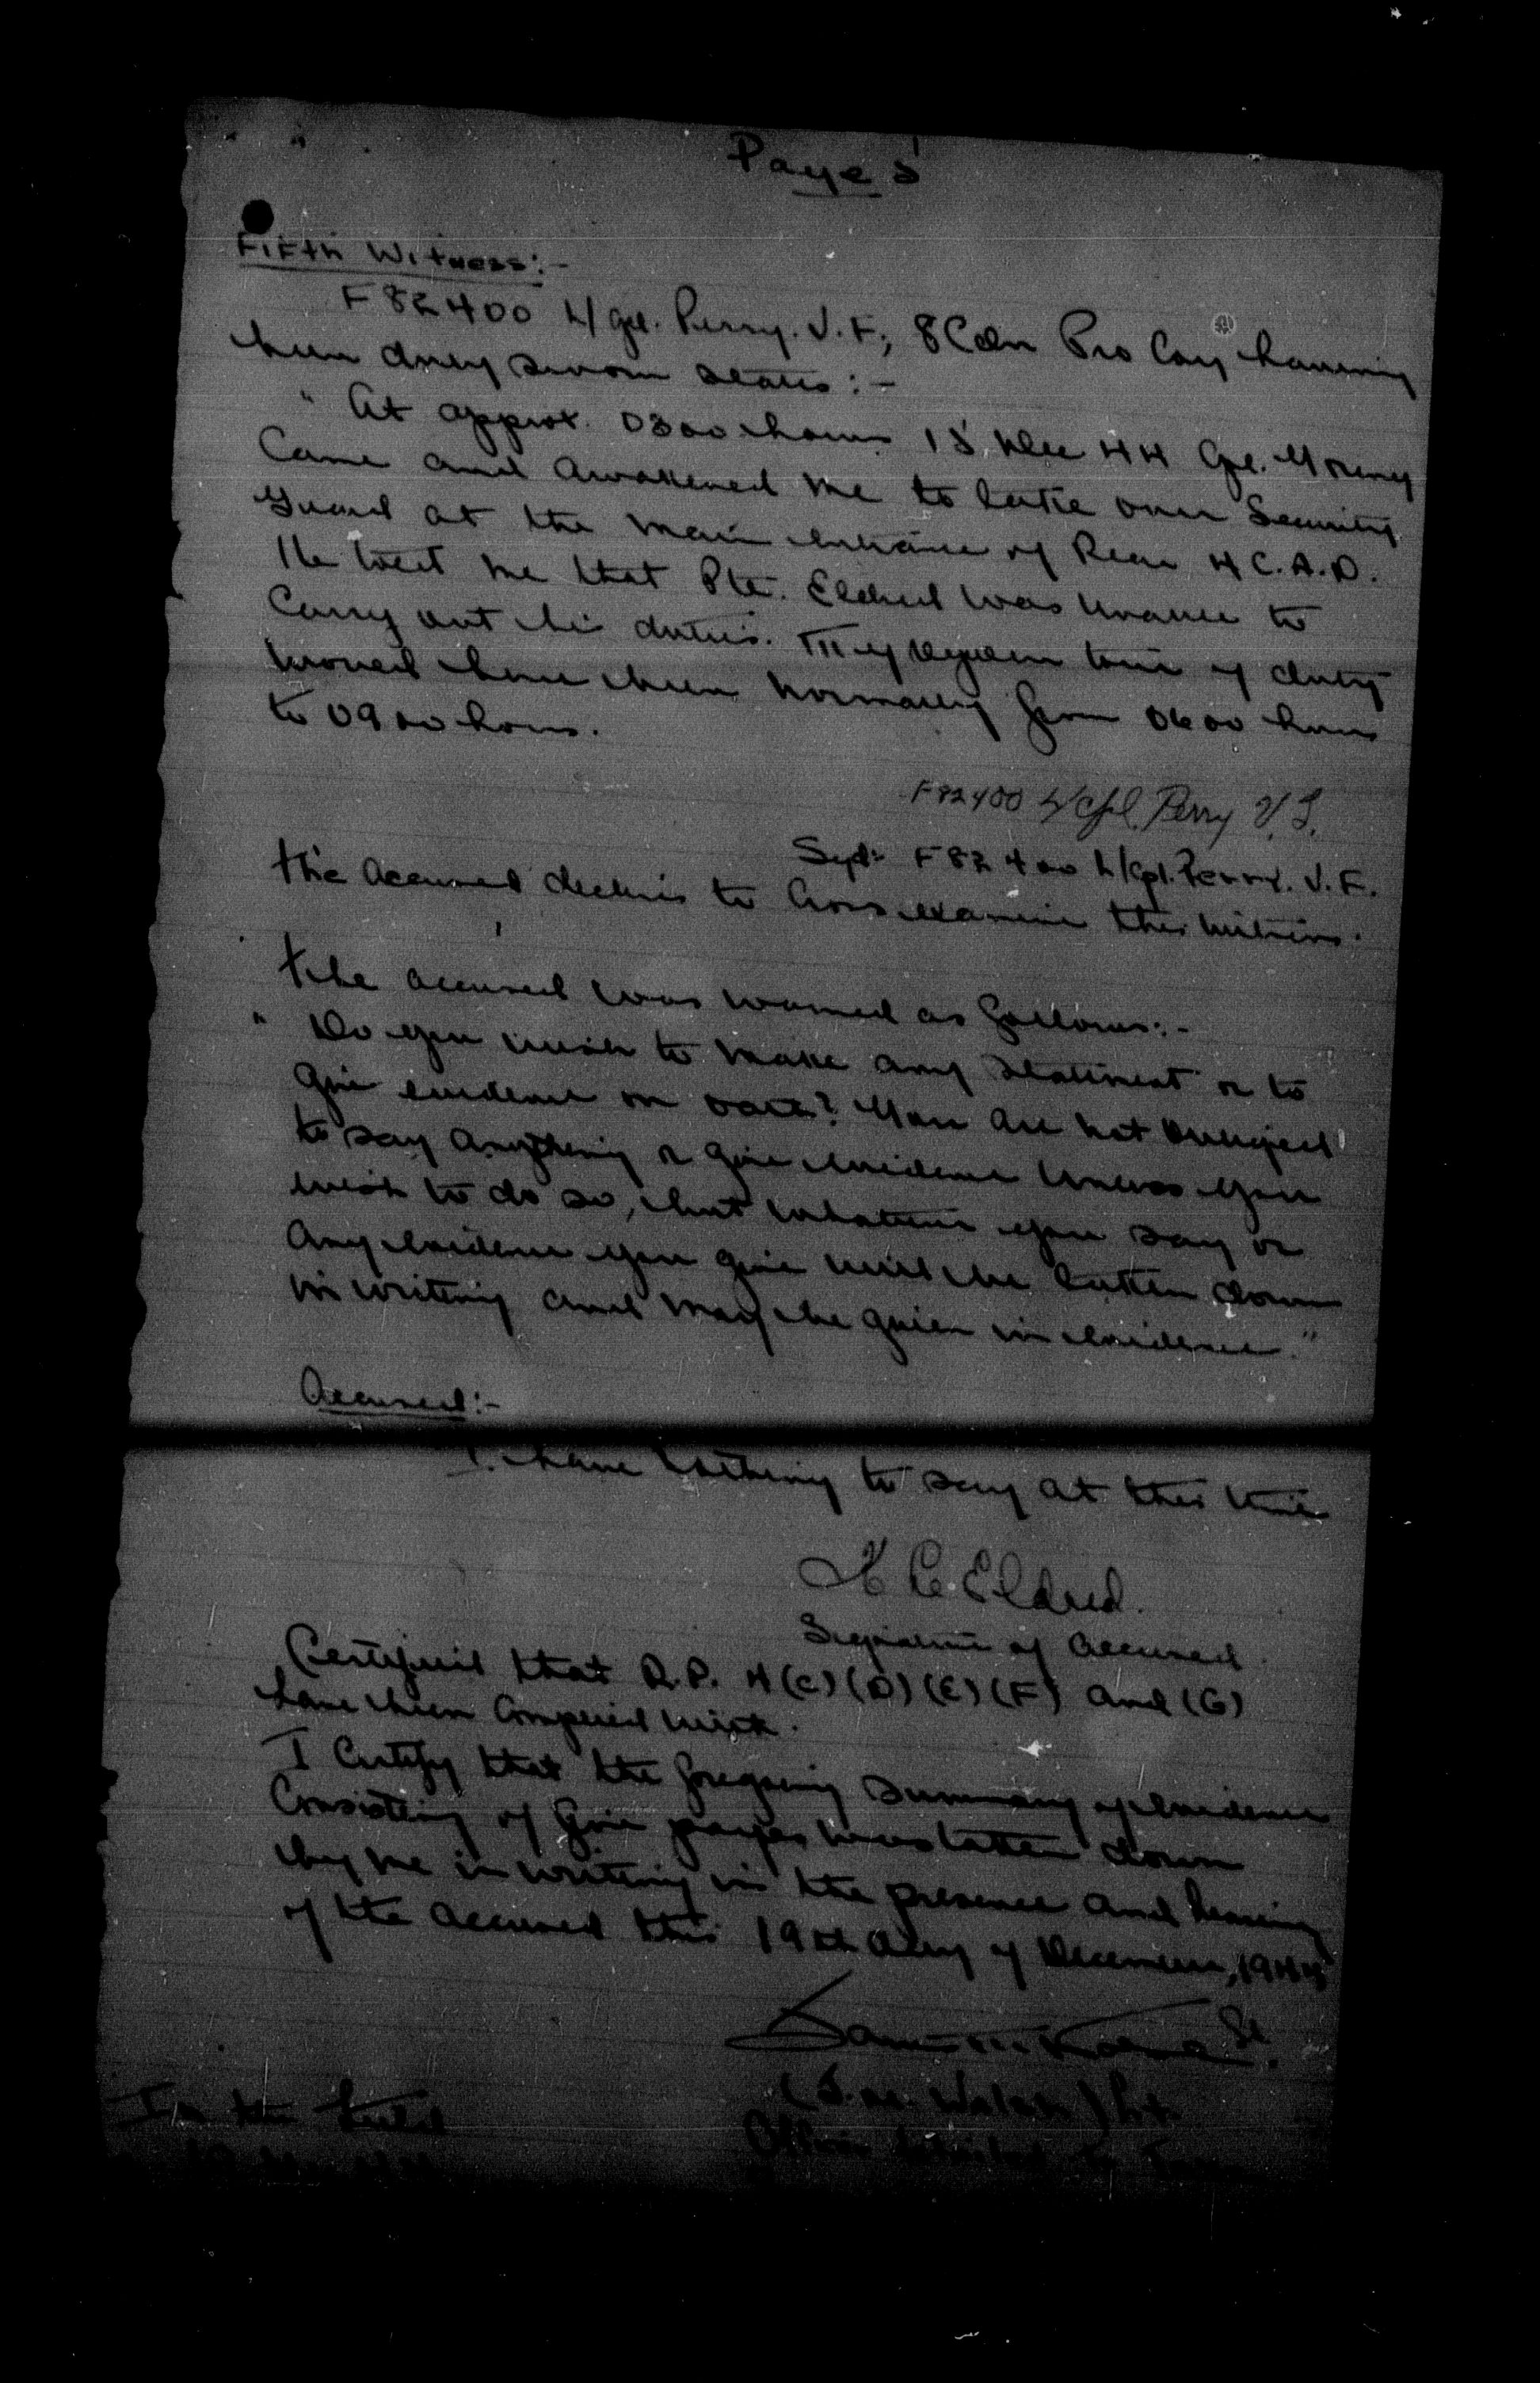 Page 5
Fifth Witness:-
F 82400 L/Cpl. Perry. V.F., 8 Cdn Pro Coy having
been duly sworn states:-
" At approx. 0300 hours 15 Dec 44 Cpl.
Came and awakened me to take over Security
Guard at the main entrance of Rear 4 C.A.D.
He told me that Pte. Eldred was unable to
Carry out his duties. My regular tour of duty
would have been normally from 0600 hours
to 0900 hours.
F82400 L/Cpl. Perry V.F.
Sgd:- F 82400 L/Cpl. Perry. V.F.
The Accused declines to Cross examine this witness.
The accused was warned as follows:-
" Do you wish to make any statement or to
give evidence on oath? You are not obliged
to say anything or give evidence unless you
wish to do so, but whatever you say or
any evidence you give will be taken down
in writing and may be given in evidence."
Accused:-
I have nothing to say at this time
Eldred.
Signature of Accused.
Certified that R.P. 4 (C) (D) (E) (F) and (G)
have been complied with.
I Certify that the foregoing summary of evidence
Consisting of five pages was taken down
by me in writing in the presence and hearing
of the accused this 19th day of December, 1944
(S.M. Walsh) Lt.
In the Field
Officer detailed to Take